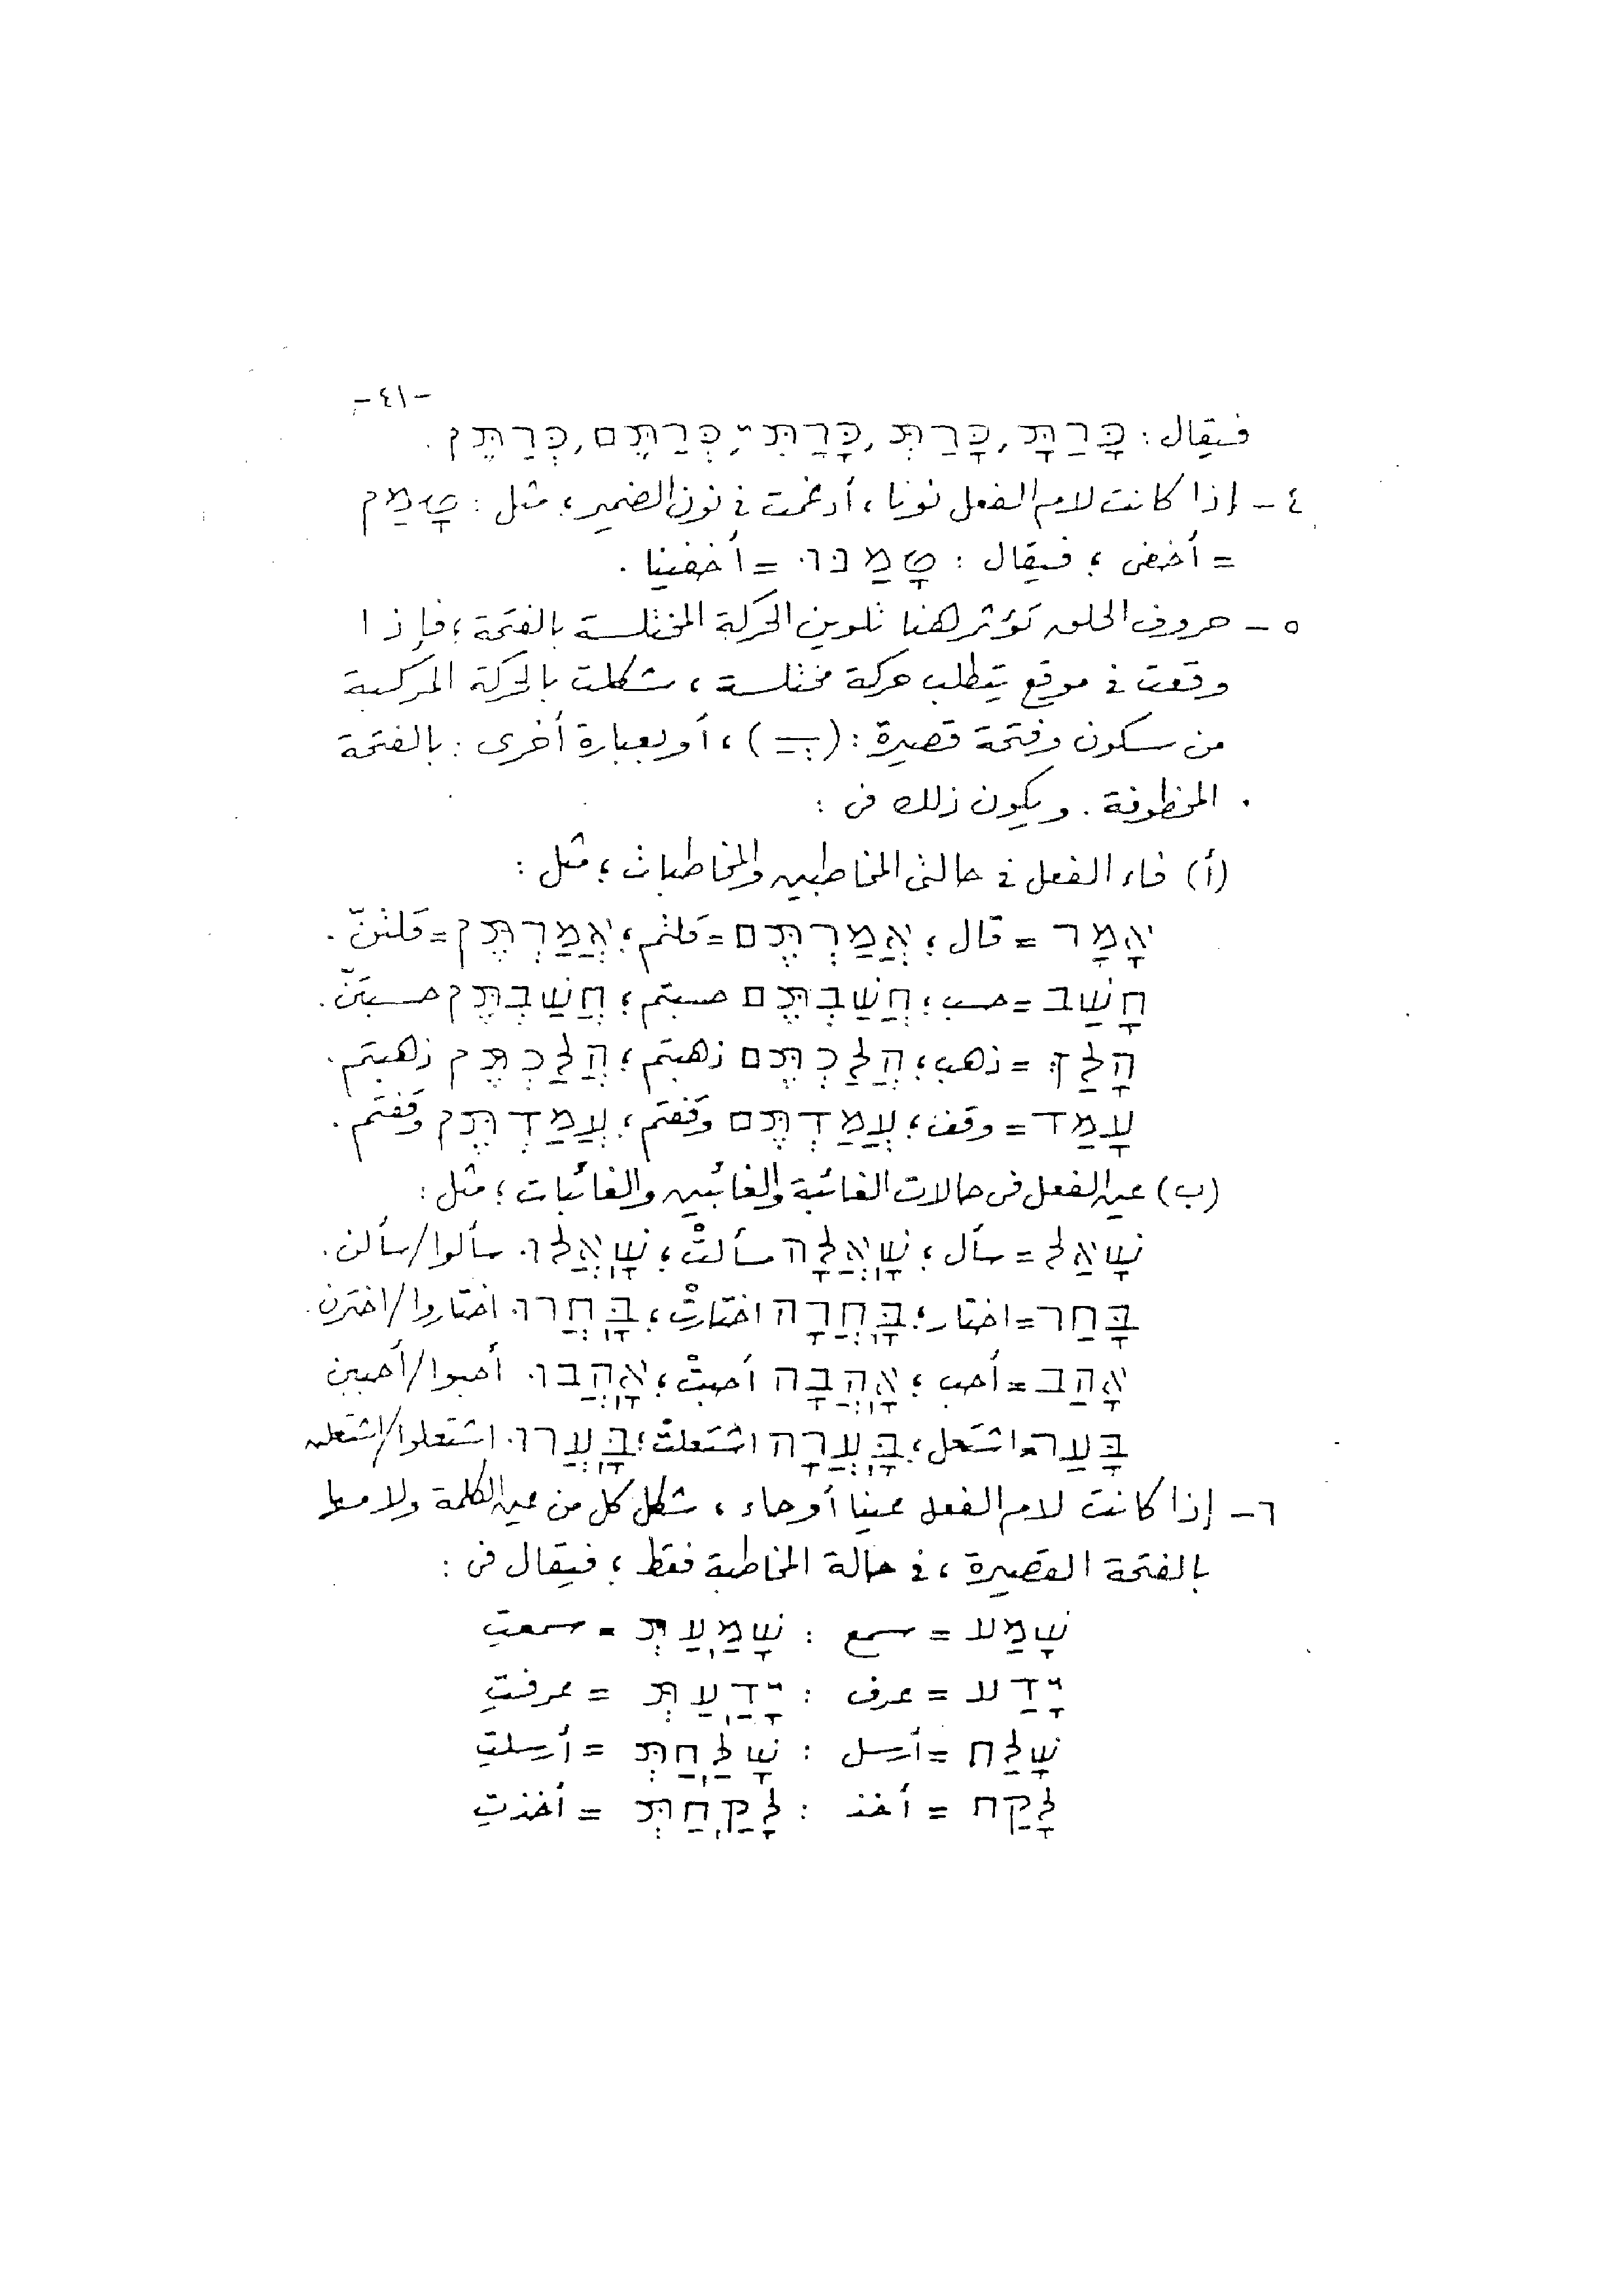 -٤١-
فيقال : כָּרַתָּ , כָּרַתְּ , כָּרַתִּי , כְּרַתֶּם , כְּרַתֶּן .
٤ – إذا كانت لام الفعل نونا ، أدغمت في نون الضمير ؛ مثل : טָמַן
= أخفى ؛ فيقال : טָמַנּוּ = أخفينا .
٥ – حروف الحلق تؤثر هنا تلوين الحركة المختلسة بالفتحة ؛ فإذا
وقعت في موقع يتطلب حركة مختلسة ، شكلت بالحركة المركبة
من سكون وفتحة قصيرة : ( ֲ ) ، أو بعبارة أخرى : بالفتحة
المخطوفة . ويكون ذلك في :
(أ) فاء الفعل في حالتي المخاطبين والمخاطبات ؛ مثل :
אָמַר = قال ؛ אֲמַרְתֶּם = قلتم ؛ אֲמַרְתֶּן = قلتنّ .
חָשַׁב = حسب ؛ חֲשַׁבְתֶּם حسبتم ؛ חֲשַׁבְתֶּן حسبتنّ .
הָלַךְ = ذهب ؛ הֲלַכְתֶּם ذهبتم ؛ הֲלַכְתֶּן ذهبتم .
עָמַד = وقف ؛ עֲמַדְתֶּם وقفتم ؛ עֲמַדְתֶּן وقفتم .
(ب) عين الفعل في حالات الغائبة والغائبين والغائبات ؛ مثل :
שָׁאַל = سأل ؛ שָֽׁאֲלָה سألتْ ؛ שָֽׁאֲלוּ سألوا/سألن .
בָּחַר = اختار ؛ בָּֽחֲרָה اختارتْ ؛ בָּֽחֲרוּ اختاروا/اخترن .
אָהַב = أحب ؛ אָֽהֲבָה أحبتْ ؛ אָֽהֲבוּ أحبوا/أحببن
בָּעַר = اشتعل ؛ בָּֽעֲרָה اشتعلتْ ؛ בָּֽעֲרוּ اشتعلوا/اشتعلن
٦ – إذا كانت لام الفعل عينا أو حاء ، شكل كل من عين الكلمة ولامها
بالفتحة القصيرة ، في حالة المخاطبة فقط ؛ فيقال في :
שָׁמַע = سمع : שָׁמַֽעַתְּ = سمعتِ
יָדַע = عرف : יָדַֽעַתְּ = عرفتِ
שָׁלַח = أرسل : שָׁלַֽחַתְּ = أرسلتِ
לָקַח = أخذ : לָקַֽחַתְּ = أخذتِ